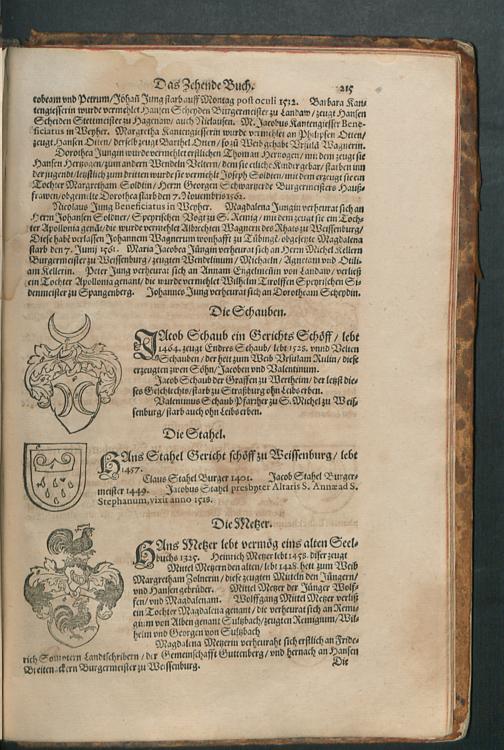 Das Zehende Buch. 215
tobeam vnd Petrum/ Johañ Jung starb auff Montag post oculi 1512. Barbara Kan-
tengiesserin wurde vermehlet Hansen Scheyden Burgermeister zu Landaw/ zeugt Hansen
Scheyden Stettmeister zu Hagenaw/ auch Niclausen. M. Jacobus Kantengiesser Bene-
ficiatus in Weyher. Margretha Kantengiesserin wurde vermehlet an Philipsen Otten/
zeugt Hansen Otten/ derselb zeugt Barthel Otten/ so zů Weib gehabt Vrsula Wagnerin.
Dorothea Jungin wurde vermehlet erstlichen Thoman Hertzogen/ mit dem zeugt sie
Hansen Hertzogen/ zum andern Wendeln Veltern/ dem sie etliche Kinder gebar/ starben inn
der jugend/ letstlich zum dritten wurde sie vermehlt Joseph Soldten/ mit dem erzeugt sie ein
Tochter Margretham Soldtin/ Herrn Georgen Schwartzerde Burgermeisters Hauß-
frawen/ obgemelte Dorothea starb den 7. Nouembris 1562.
Nicolaus Jung Beneficiatus in Weyher. Magdalena Jungin verheurat sich an
Herrn Johansen Soldner/ Speyrischen Vogt zu S. Remig/ mit dem zeugt sie ein Toch-
ter Apollonia genãt/ die wurde vermehlet Albrechten Wagnern des Rhats zu Weissenburg/
Diese habẽ verlassen Johannem Wagnerum wonhafft zu Tübingẽ. obgesetzte Magdalena
starb den 7. Junij 1561. Maria Jacobea Jüngin verheurat sich an Herrn Michel Kellern
Burgermeister zu Weissenburg/ zeugten Wendelinum/ Michaeln/ Agnetam vnd Otili-
am Kellerin. Peter Jung verheurat sich an Annam Engelmeßin von Landaw/ verließ
ein Tochter Apollonia genant/ die wurde vermehlet Wilhelm Tirolffen Speyrischen Si-
denmeister zu Spangenberg. Johannes Jung verheurat sich an Dorotheam Scheydin.
Die Schauben.
JAcob Schaub ein Gerichts Schöff/ lebt
1464. zeugt Endres Schaub/ lebt 1528. vnnd Velten
Schauben/ der hett zum Weib Vrsulam Rülin/ diese
erzeugten zwen Söhn/ Jacoben vnd Valentinum.
Jacob Schaub der Graffen zu Wertheim/ der letst die-
ses Geschlechts/ starb zu Straßburg ohn Leibs erben.
Valentinus Schaub Pfarrher zu S. Michel zu Weis-
senburg/ starb auch ohn Leibs erben.
Die Stahel.
HAns Stahel Gericht schöff zu Weissenburg/ lebt
1457.
Claus Stahel Burger 1401. Jacob Stahel Burger-
meister 1449. Jacobus Stahel presbyter Altaris S. Annæ ad S.
Stephanum, vixit anno 1518.
Die Metzer.
HAns Metzer lebt vermög eins alten Seel-
buchs 1325. Heinrich Metzer lebt 1458. diser zeugt
Mittel Metzern den alten/ lebt 1428. hett zum Weib
Margretham Zolnerin/ diese zeugten Mitteln den Jüngern/
vnd Hansen gebrüder. Mittel Metzer der Jünger Wolf-
fen/ vnd Magdalenam. Wolffgang Mittel Metzer verließ
ein Tochter Magdalena genant/ die verheurat sich an Remi-
gium von Alben genant Sultzbach/ zeugten Remigium/ Wil-
helm vnd Georgen von Sultzbach
Magdalena Metzerin verheuraht sich erstlich an Fride-
rich Landtschribern/ der Gemeinschafft Guttenberg/ vnd hernach an Hansen
Breitenackern Burgermeister zu Weissenburg.
Die